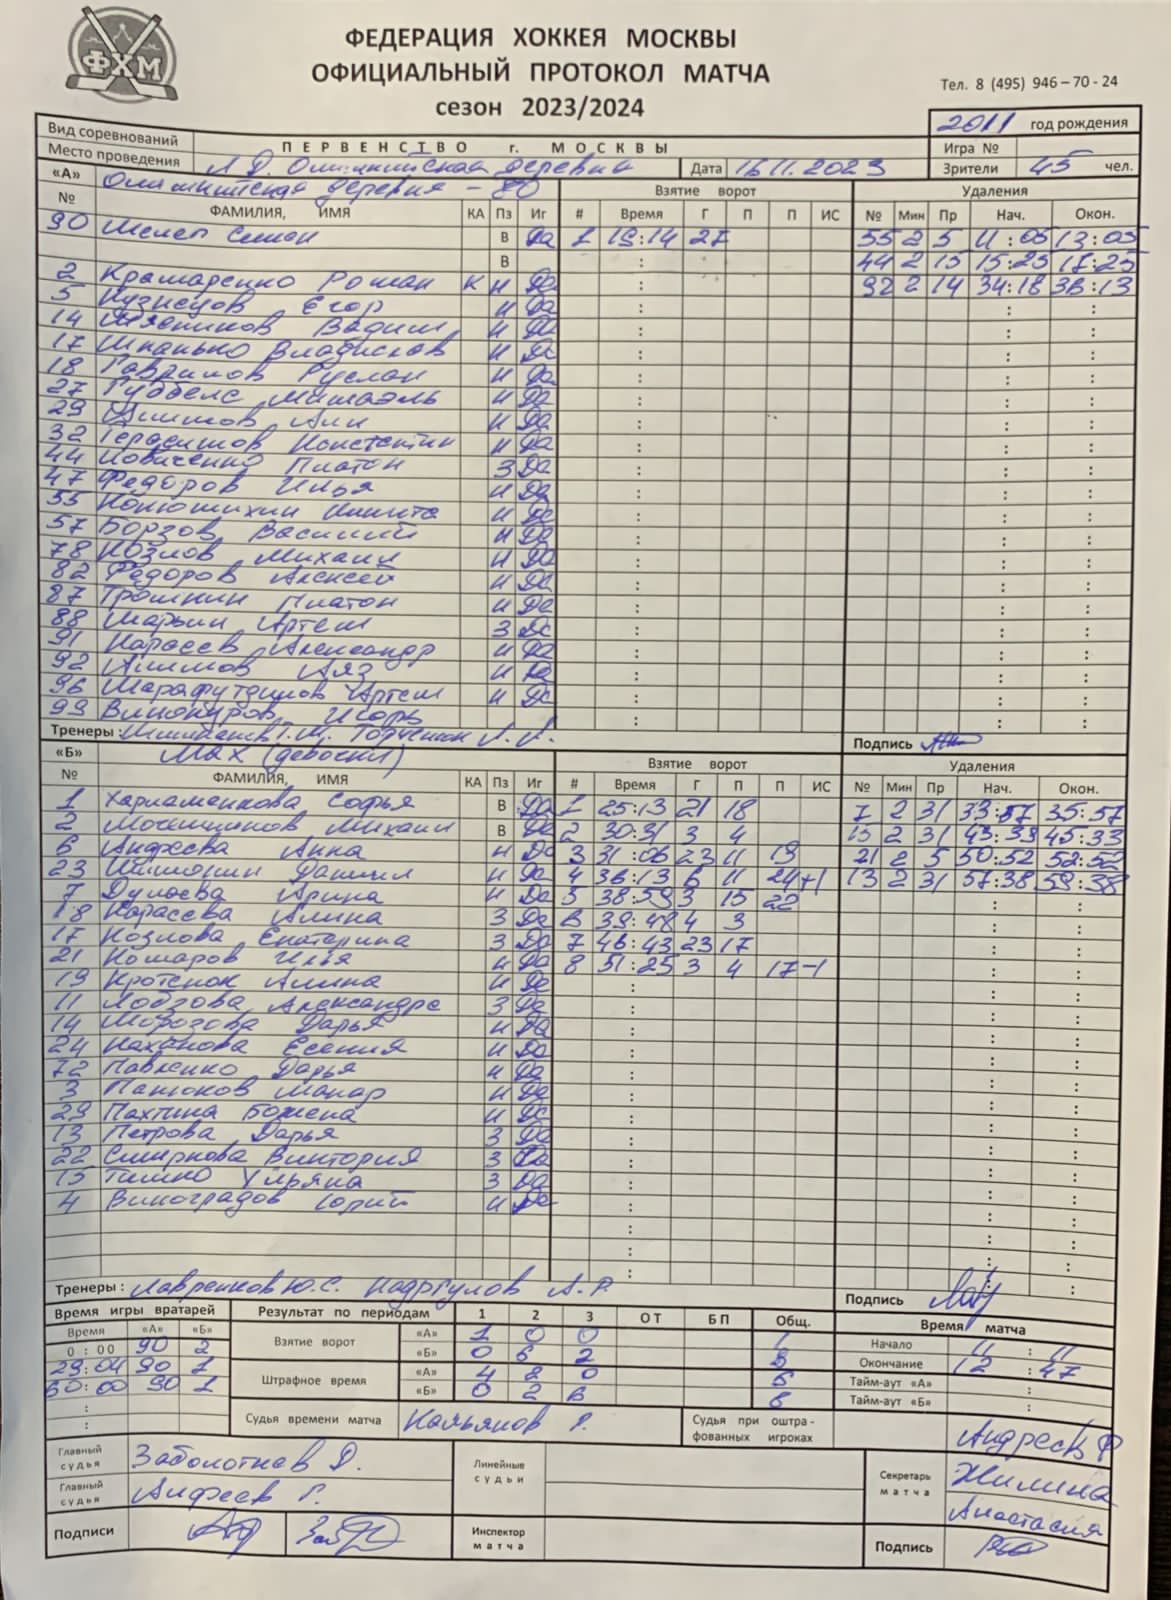 ФХМ
ФЕДЕРАЦИЯ ХОККЕЯ МОСКВЫ
ОФИЦИАЛЬНЫЙ ПРОТОКОЛ МАТЧА
сезон 2023/2024
Тел. 8 (495) 946–70-24
2011 год рождения
Вид соревнований ПЕРВЕНСТВО г. МОСКВЫ Игра №
Место проведения Л.Д. Олимпийская деревня Дата 16.11.2023 Зрители 45 чел.
«А» Олимпийская деревня - 80 Взятие ворот Удаления
№ ФАМИЛИЯ, ИМЯ КА Пз Иг # Время Г П П ИС № Мин Пр Нач. Окон.
90 Семен В Да 1 19:14 27 55 2 5 11:05 13:05
В : 44 2 15 15:25 17:25
2 Крамаренко Роман К Н Да : 92 2 14 34:18 36:13
5 Кузнецов Егор Н Да : : :
14 Мясников Вадим Н Да : : :
17 Шпанько Владислав Н Да : : :
18 Гаврилов Руслан Н Да : : :
27 Губбелс Микаэль Н Да : : :
29 Алимов Али Н Да : : :
32 Герасимов Константин Н Да : : :
44 Платон З Да : : :
47 Федоров Илья Н Да : : :
55 Конюшихин Никита Н Да : : :
57 Борзов Василий Н Да : : :
78 Козлов Михаил Н Да : : :
82 Федоров Алексей Н Да : : :
87 Трошкин Платон Н Да : : :
88 Марьин Артем З Да : : :
91 Карасев Александр Н Да : : :
92 Алимов Аяз Н Да : : :
96 Шарафутдинов Артем Н Да : : :
99 Винокуров Игорь : : :
Тренеры: Подпись
«Б» МАХ (девочки) Взятие ворот Удаления
№ ФАМИЛИЯ, ИМЯ КА Пз Иг # Время Г П П ИС № Мин Пр Нач. Окон.
1 Харламенкова Софья В Да 1 25:13 21 18 7 2 31 33:57 35:57
2 Михаил В Да 2 30:31 3 4 15 2 31 43:33 45:33
6 Андреева Анна Н Да 3 31:06 23 11 19 21 2 5 50:52 52:52
23 Шимонин Даниил Н Да 4 36:13 6 11 24 +1 13 2 31 57:38 59:38
7 Дулаева Арина Н Да 5 38:59 3 15 22 : :
18 Карасева Алина З Да 6 39:48 4 3 : :
17 Козлова Екатерина З Да 7 46:43 23 17 : :
21 Комаров Илья Н Да 8 51:25 3 4 17 -1 : :
19 Кротенок Алина Н Да : : :
11 Лобзова Александра З Да : : :
14 Морозова Дарья Н Да : : :
24 Наханова Есения Н Да : : :
72 Павленко Дарья Н Да : : :
3 Панюков Макар Н Да : : :
29 Пахтина Божена Н Да : : :
13 Петрова Дарья З Да : : :
22 Смирнова Виктория З Да : : :
15 Тишко Ульяна З Да : : :
4 Виноградов Юрий Н Да : : :
: : :
: : :
: : :
Тренеры: Лавренков Ю.С. Надргулов А.Р. Подпись
Время игры вратарей Результат по периодам 1 2 3 ОТ БП Общ. Время матча
Время «А» «Б» Взятие ворот «А» 1 0 0 1 Начало 11:11
0:00 90 2 «Б» 0 6 2 8 Окончание 12:47
29:04 90 1 Штрафное время «А» 4 2 0 6 Тайм-аут «А» :
60:00 90 1 «Б» 0 2 6 8 Тайм-аут «Б» :
:
: Судья времени матча Кальянов Р. Судья при оштрафованных игроках Андреев Ф
Главный судья Заболотнев Д. Линейные судьи Секретарь матча Жилина
Главный судья Алфеев Г. Анастасия
Подписи Инспектор матча Подпись